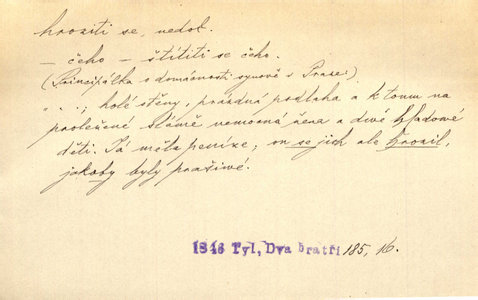 hroziti se, nedok.
— čeho — štítiti se čeho.
(Principálka o domácnosti synově v Praze:)
„ . . . ; holé stěny, prázdná podlaha a k tomu na
proležené slámě nemocná žena a dvě hladové
děti. Tá měla peníze; on se jich ale hrozil,
jakoby byly prašivé.
1846 Tyl, Dva bratři 185, 16.